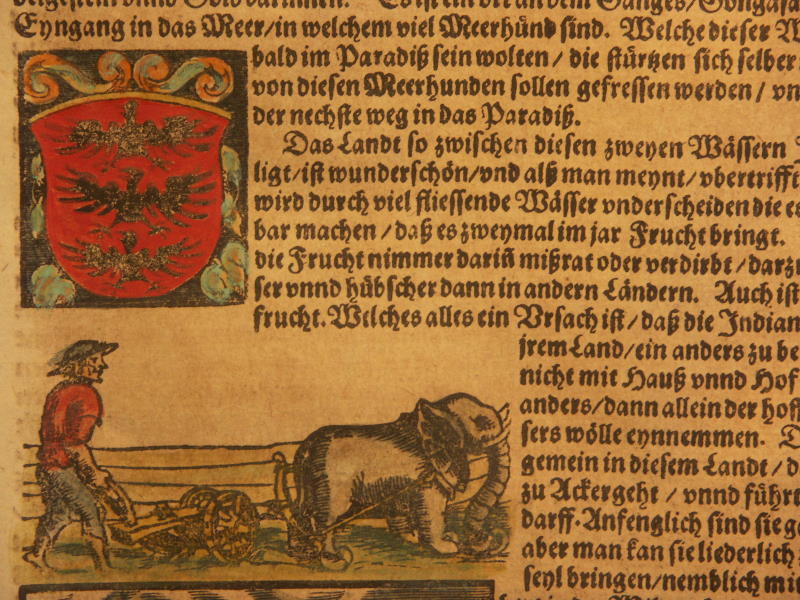 Eyngang in das Meer/in welchem viel Meerhünd sind. Welche dieser
bald im Paradiß sein wolten / die stürtzen sich selber
von diesen Meerhunden sollen gefressen werden / vn
der nechste weg in das Paradiß.
Das Landt so zwischen diesen zweyen Wässern
ligt/ist wunderschön/vnd alß man meynt/vbertrifft
wird durch viel fliessende Wässer vnderscheiden die es
bar machen / daß es zweymal im jar Frucht bringt.
die Frucht nimmer dariñ mißrat oder verdirbt / darzu
ser vnnd hübscher dann in andern Ländern. Auch ist
frucht. Welches alles ein Vrsach ist/daß die Indian
jrem Land/ein anders zu be
nicht mit Hauß vnnd Hof
anders/dann allein der hoff
sers wölle eynnemmen.
gemein in diesem Landt / d
zu Ackergeht / vnnd führt
darff. Anfenglich sind sie g
aber man kan sie liederlich
seyl bringen/nemblich mi